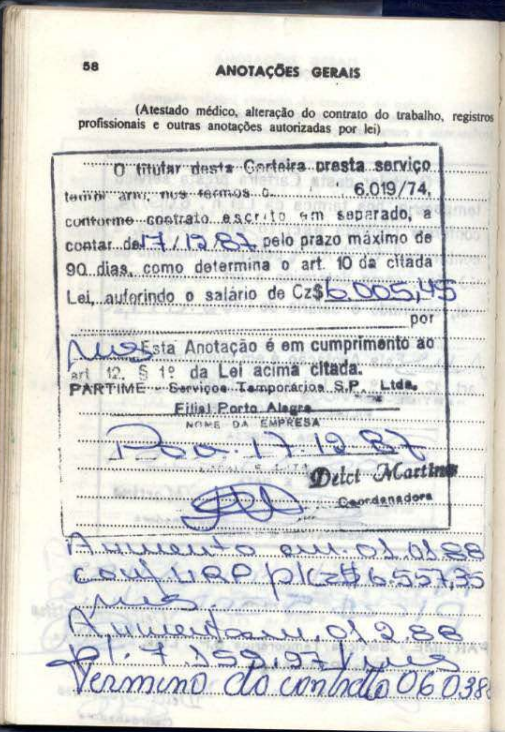 58
ANOTAÇÕES GERAIS
(Atestado médico, alteração do contrato do trabalho, registros
profissionais e outras anotações autorizadas por lei)
O titular desta Carteira presta serviço
nos termos 6.019/74,
conforme contrato escrito em separado, a
contar de 17/12/87 pelo prazo máximo de
90 dias, como determina o art. 10 da citada
Lei, auferindo o salário de Cz$ 6.005,45
por
mês Esta Anotação é em cumprimento ao
art 12, § 1º da Lei acima citada.
PARTIME - Serviços Temporários S.P. Ltda.
Filial Porto Alegre
NOME DA EMPRESA
Poa. 17.12.87
Delci Martins
Coordenadora
Aumento em 01.01.88
conf URP p/ Cz$ 6.557,35
mês.
Aumento em 01 2.88
p/. 7.159,97/mês
Termino do contrato 06 0388